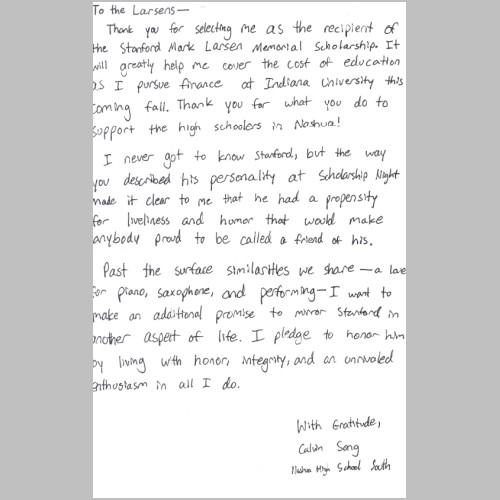 To the Larsens—
Thank you for selecting me as the recipient of
the Stanford Mark Larsen Memorial Scholarship. It
will greatly help me cover the cost of education
as I pursue finance at Indiana University this
coming fall. Thank you for what you do to
support the high schoolers in Nashua!
I never got to know Stanford, but the way
you described his personality at Scholarship Night
made it clear to me that he had a propensity
for liveliness and humor that would make
anybody proud to be called a friend of his.
Past the surface similarities we share—a love
for piano, saxophone, and performing—I want to
make an additional promise to mirror Stanford in
another aspect of life. I pledge to honor him
by living with honor, integrity, and an unrivaled
enthusiasm in all I do.
With Gratitude,
Calvin Song
Nashua High School South